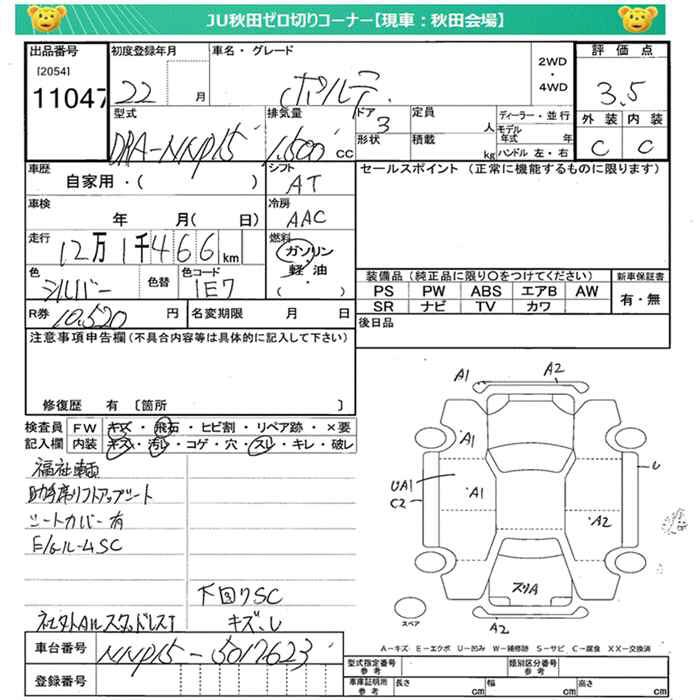 JU秋田ゼロ切りコーナー【現車：秋田会場】
出品番号 [2054] 11047
初度登録年月 22 月
車名・グレード ポルテ
2WD・4WD
評価点 3.5
外装 内装
C C
型式 DBA-NNP15
排気量 1,500 CC
ドア 3
形状
定員 人
積載 kg
ディーラー・並行
モデル年式 年
ハンドル 左・右
車歴 自家用・( )
シフト AT
セールスポイント (正常に機能するものに限ります)
車検 年 月( 日)
冷房 AAC
走行 12万1千466km
燃料 ガソリン・軽油・( )
色 シルバー
色替
色コード 1E7
装備品 (純正品に限り○をつけてください)
新車保証書
PS PW ABS エアB AW
SR ナビ TV カワ
有・無
R券 10,520 円
名変期限 月 日
後日品
注意事項申告欄(不具合内容等は具体的に記入して下さい)
修復歴 有 〔箇所 〕
検査員記入欄
FW キズ・飛石・ヒビ割・リペア跡・×要
内装 キズ・汚レ・コゲ・穴・スレ・キレ・破レ
福祉車輌
助手席リフトアップシート
シートカバー有
E/gルームSC
下回りSC
キズ、U
A1 A2
A1
U
UA1
C2
A1
A2
スリA
スペア
A2
A-キズ E-エクボ U-凹み W-補修跡 S-サビ C-腐食 XX-交換済
車台番号 NNP15-5017623
登録番号
型式指定番号 参考
類別区分番号 参考
車庫証明用 参考 長さ cm 幅 cm 高さ cm